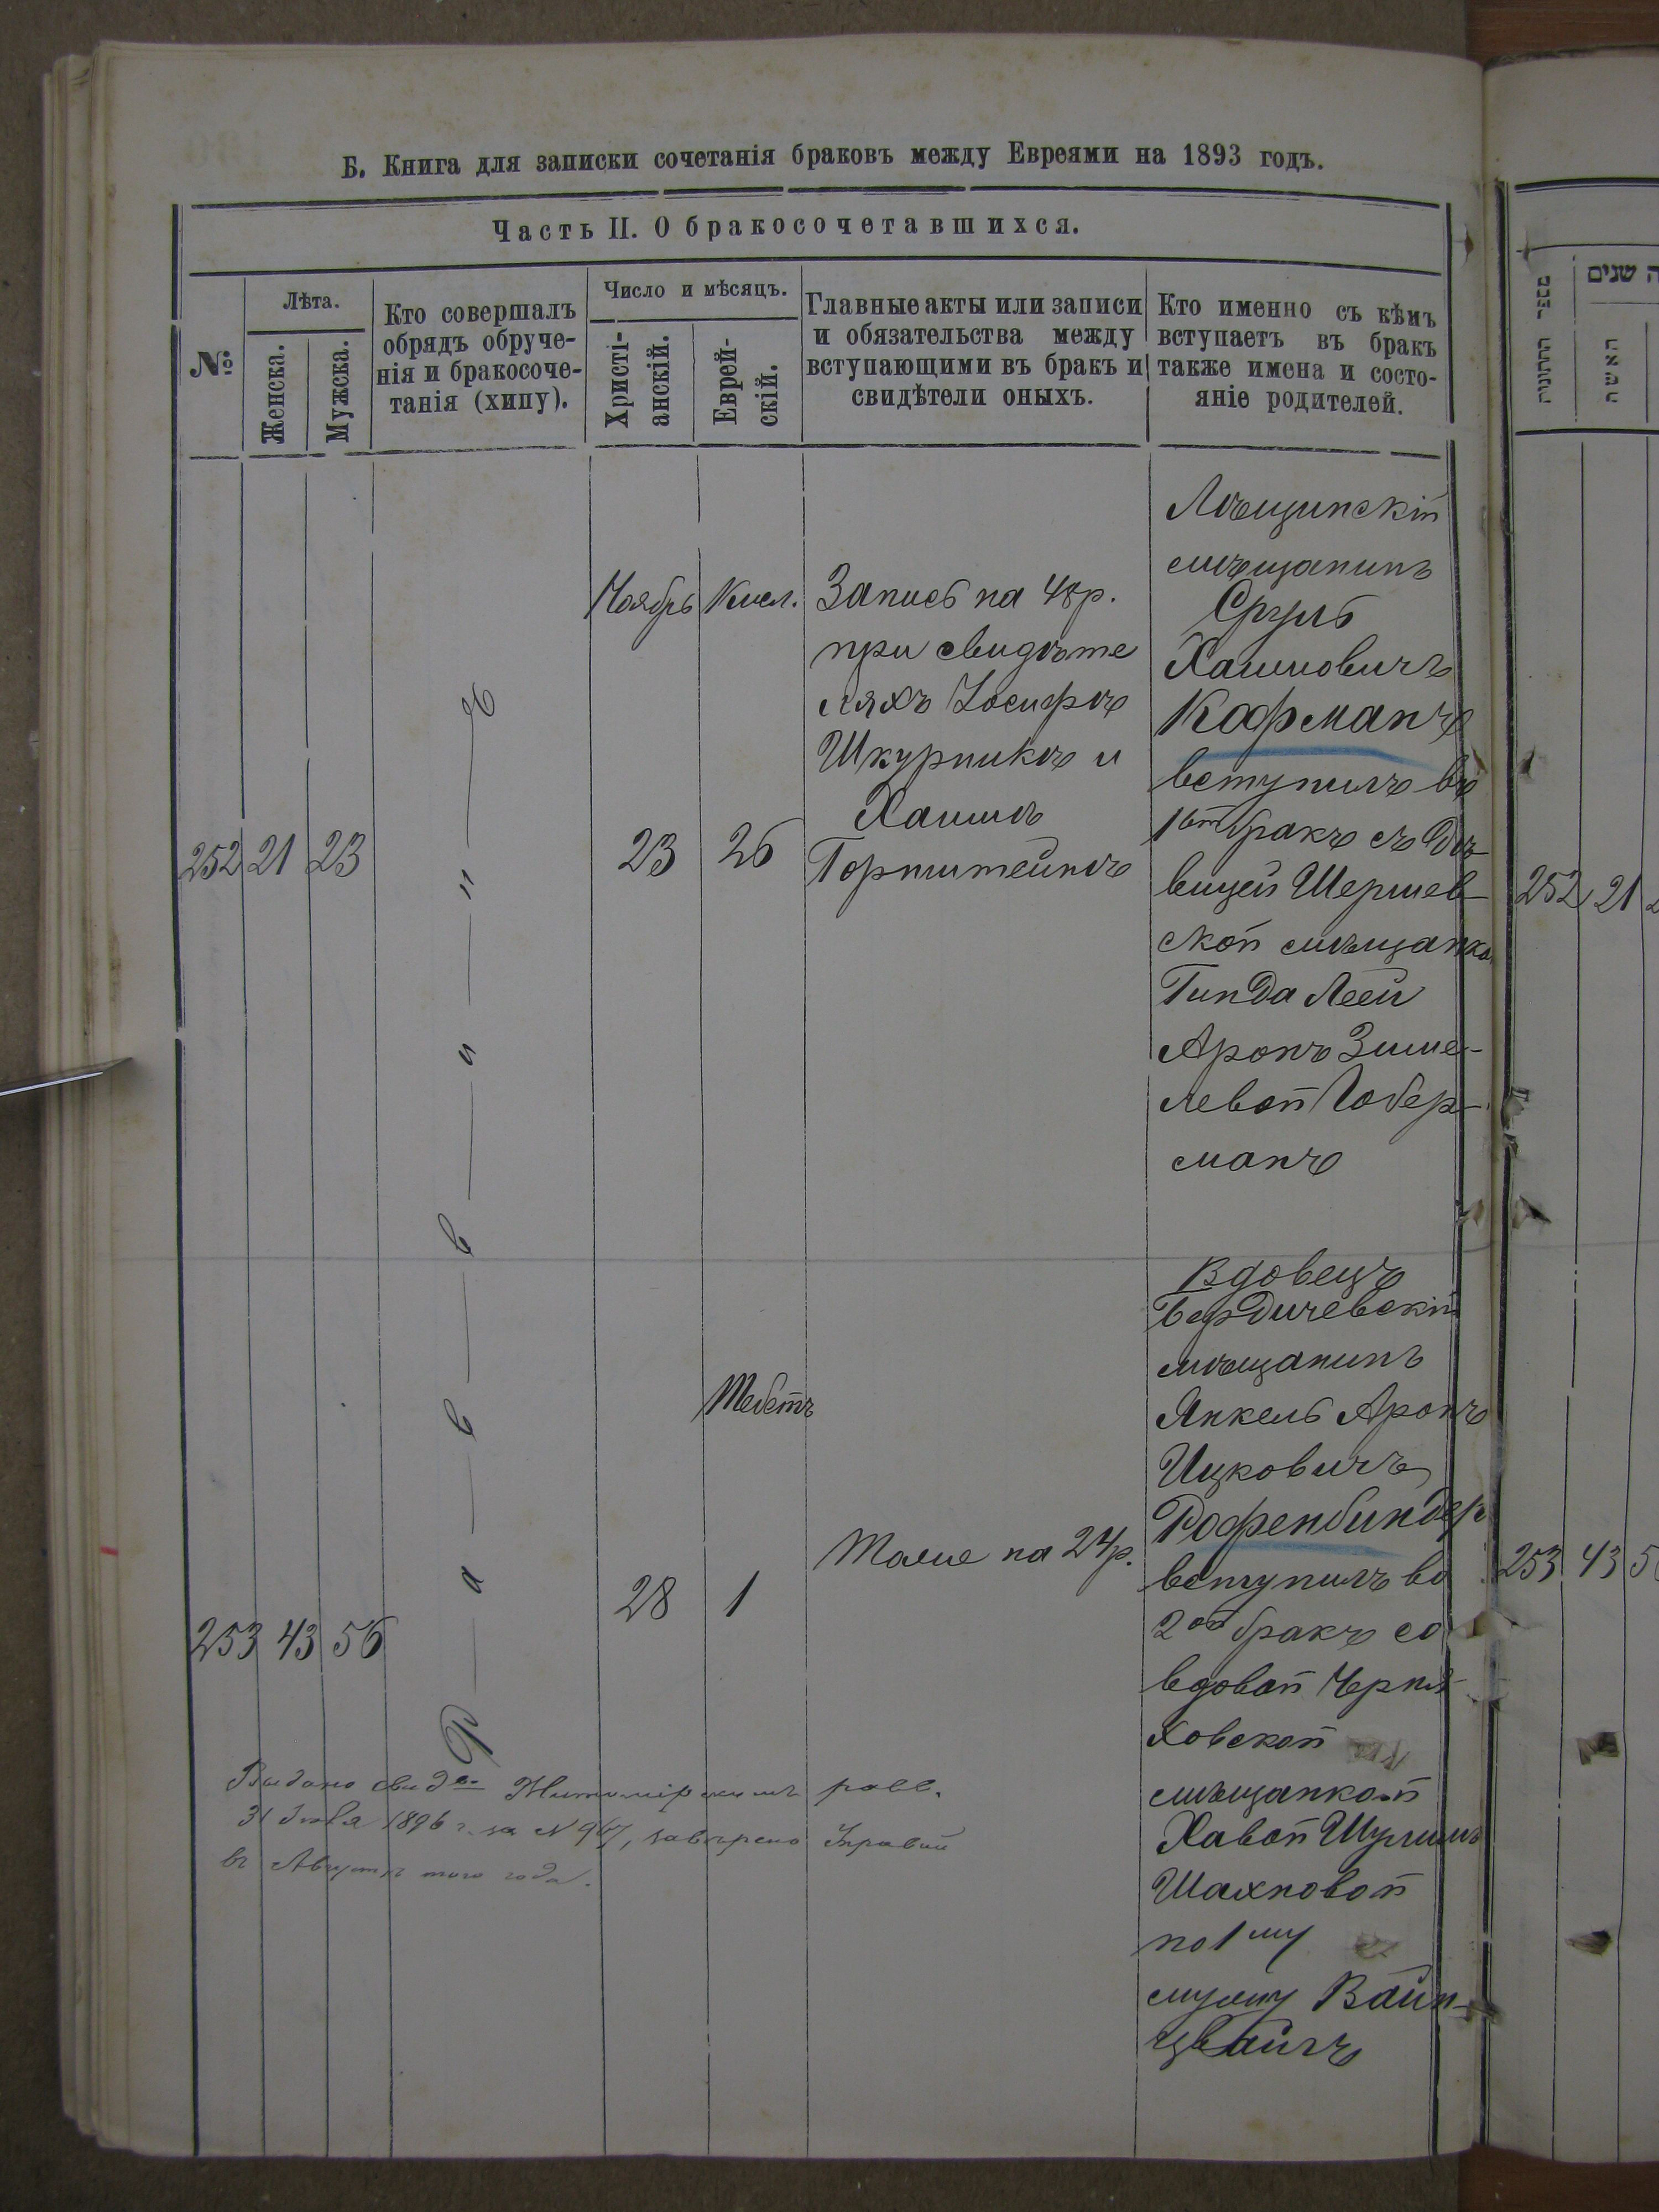 Б. Книга для записки сочетанія браковъ между Евреями на 1893 годъ.
Часть II. О бракосочетавшихся.
№
Лѣта.
Женска.
Мужска.
Кто совершалъ
обрядъ обруче-
нія и бракосоче-
танія (хипу).
Число и мѣсяцъ.
Христі-
анскій.
Еврей-
скій.
Главные акты или записи
и обязательства между
вступающими въ бракъ и
свидѣтели оныхъ.
Кто именно съ кѣмъ
вступаетъ въ бракъ
также имена и состо-
яніе родителей.
252 21 23
Р а в в и н ъ
Ноябрь
23
Кисл.
26
Запись на 48р.
при свидѣте
ляхъ Іосифѣ
Шкурникѣ и
Хаимѣ
Горнштейнѣ
Лѣщинскій
мѣщанинъ
Сруль
Хаимовичъ
Кофманъ
вступилъ въ
1ый бракъ съ дѣ-
вицей Шершев-
ской мѣщанко
Гинда Леей
Аронъ Зиме-
левой Гобер-
манъ
253 43 56
28
Теbетъ
1
Тоже на 24р.
Вдовецъ
Бердичевскій
мѣщанинъ
Янкель Аронъ
Ицковичъ
Рофенбиндер
вступилъ во
2ой бракъ со
вдовой Черня
ховской
мѣщанкой
Хавой Шулимъ
Шахновой
по 1му
мужу Вайн-
цвайгъ
Выдано свидѣ Житомірскимъ равв.
31 Іюля 1896 г. за № 947, завѣрено Управой
въ Августѣ того года.
מספר החתונה
ה שנים
האשה
252 21
253 43 5